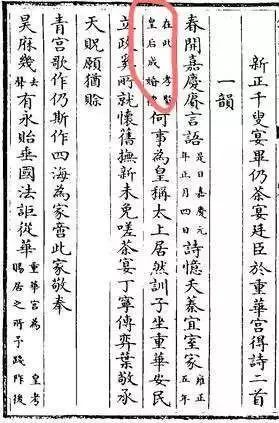 新正千叟宴畢仍茶宴廷臣於重華宮得詩二首
一韻
春開嘉慶賡言語是日嘉慶元年正月四日詩憶天蓁宜室家雍正五年
在此孝賢皇后成婚何事為皇稱太上居然訓子坐重華安民
立政吾所就懷舊撫新未免嗟茶宴丁寧傳弈葉敬承
天貺願猶賒
青宮歌作仍斯作四海為家啻此家敬奉
昊庥幾去聲有永貽垂國法詎從華重華宮為皇考賜居之所予踐阼後